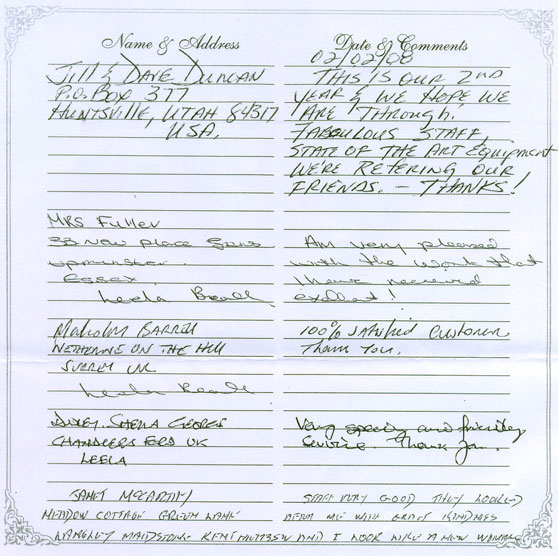 Name & Address
Date & Comments
Jill & Dave Duncan
P.O. Box 377
Huntsville, Utah 84317
USA.
02/02/08
This is our 2nd
year & we hope we
are through.
Fabulous staff,
state of the art equipment
we're refering our
friends. – Thanks!
Mrs Fuller
33 New Place Gdns
Upminster.
Essex.
Leela Beall
Am very pleased
with the work that
I have received
exellent!
Malcolm Barrell
on the Hill
Surrey UK
Leela Beall
100% satisfied customer
Thank you.
Sheila George
Chandlers Ford UK
Leela
Very speedy and friendly
service. Thank you.
Janet McCarthy
Meadow Cottage Green Lane
Langley Maidstone Kent
Staff very good they looked
after me with great kindness
and I look like a new woman